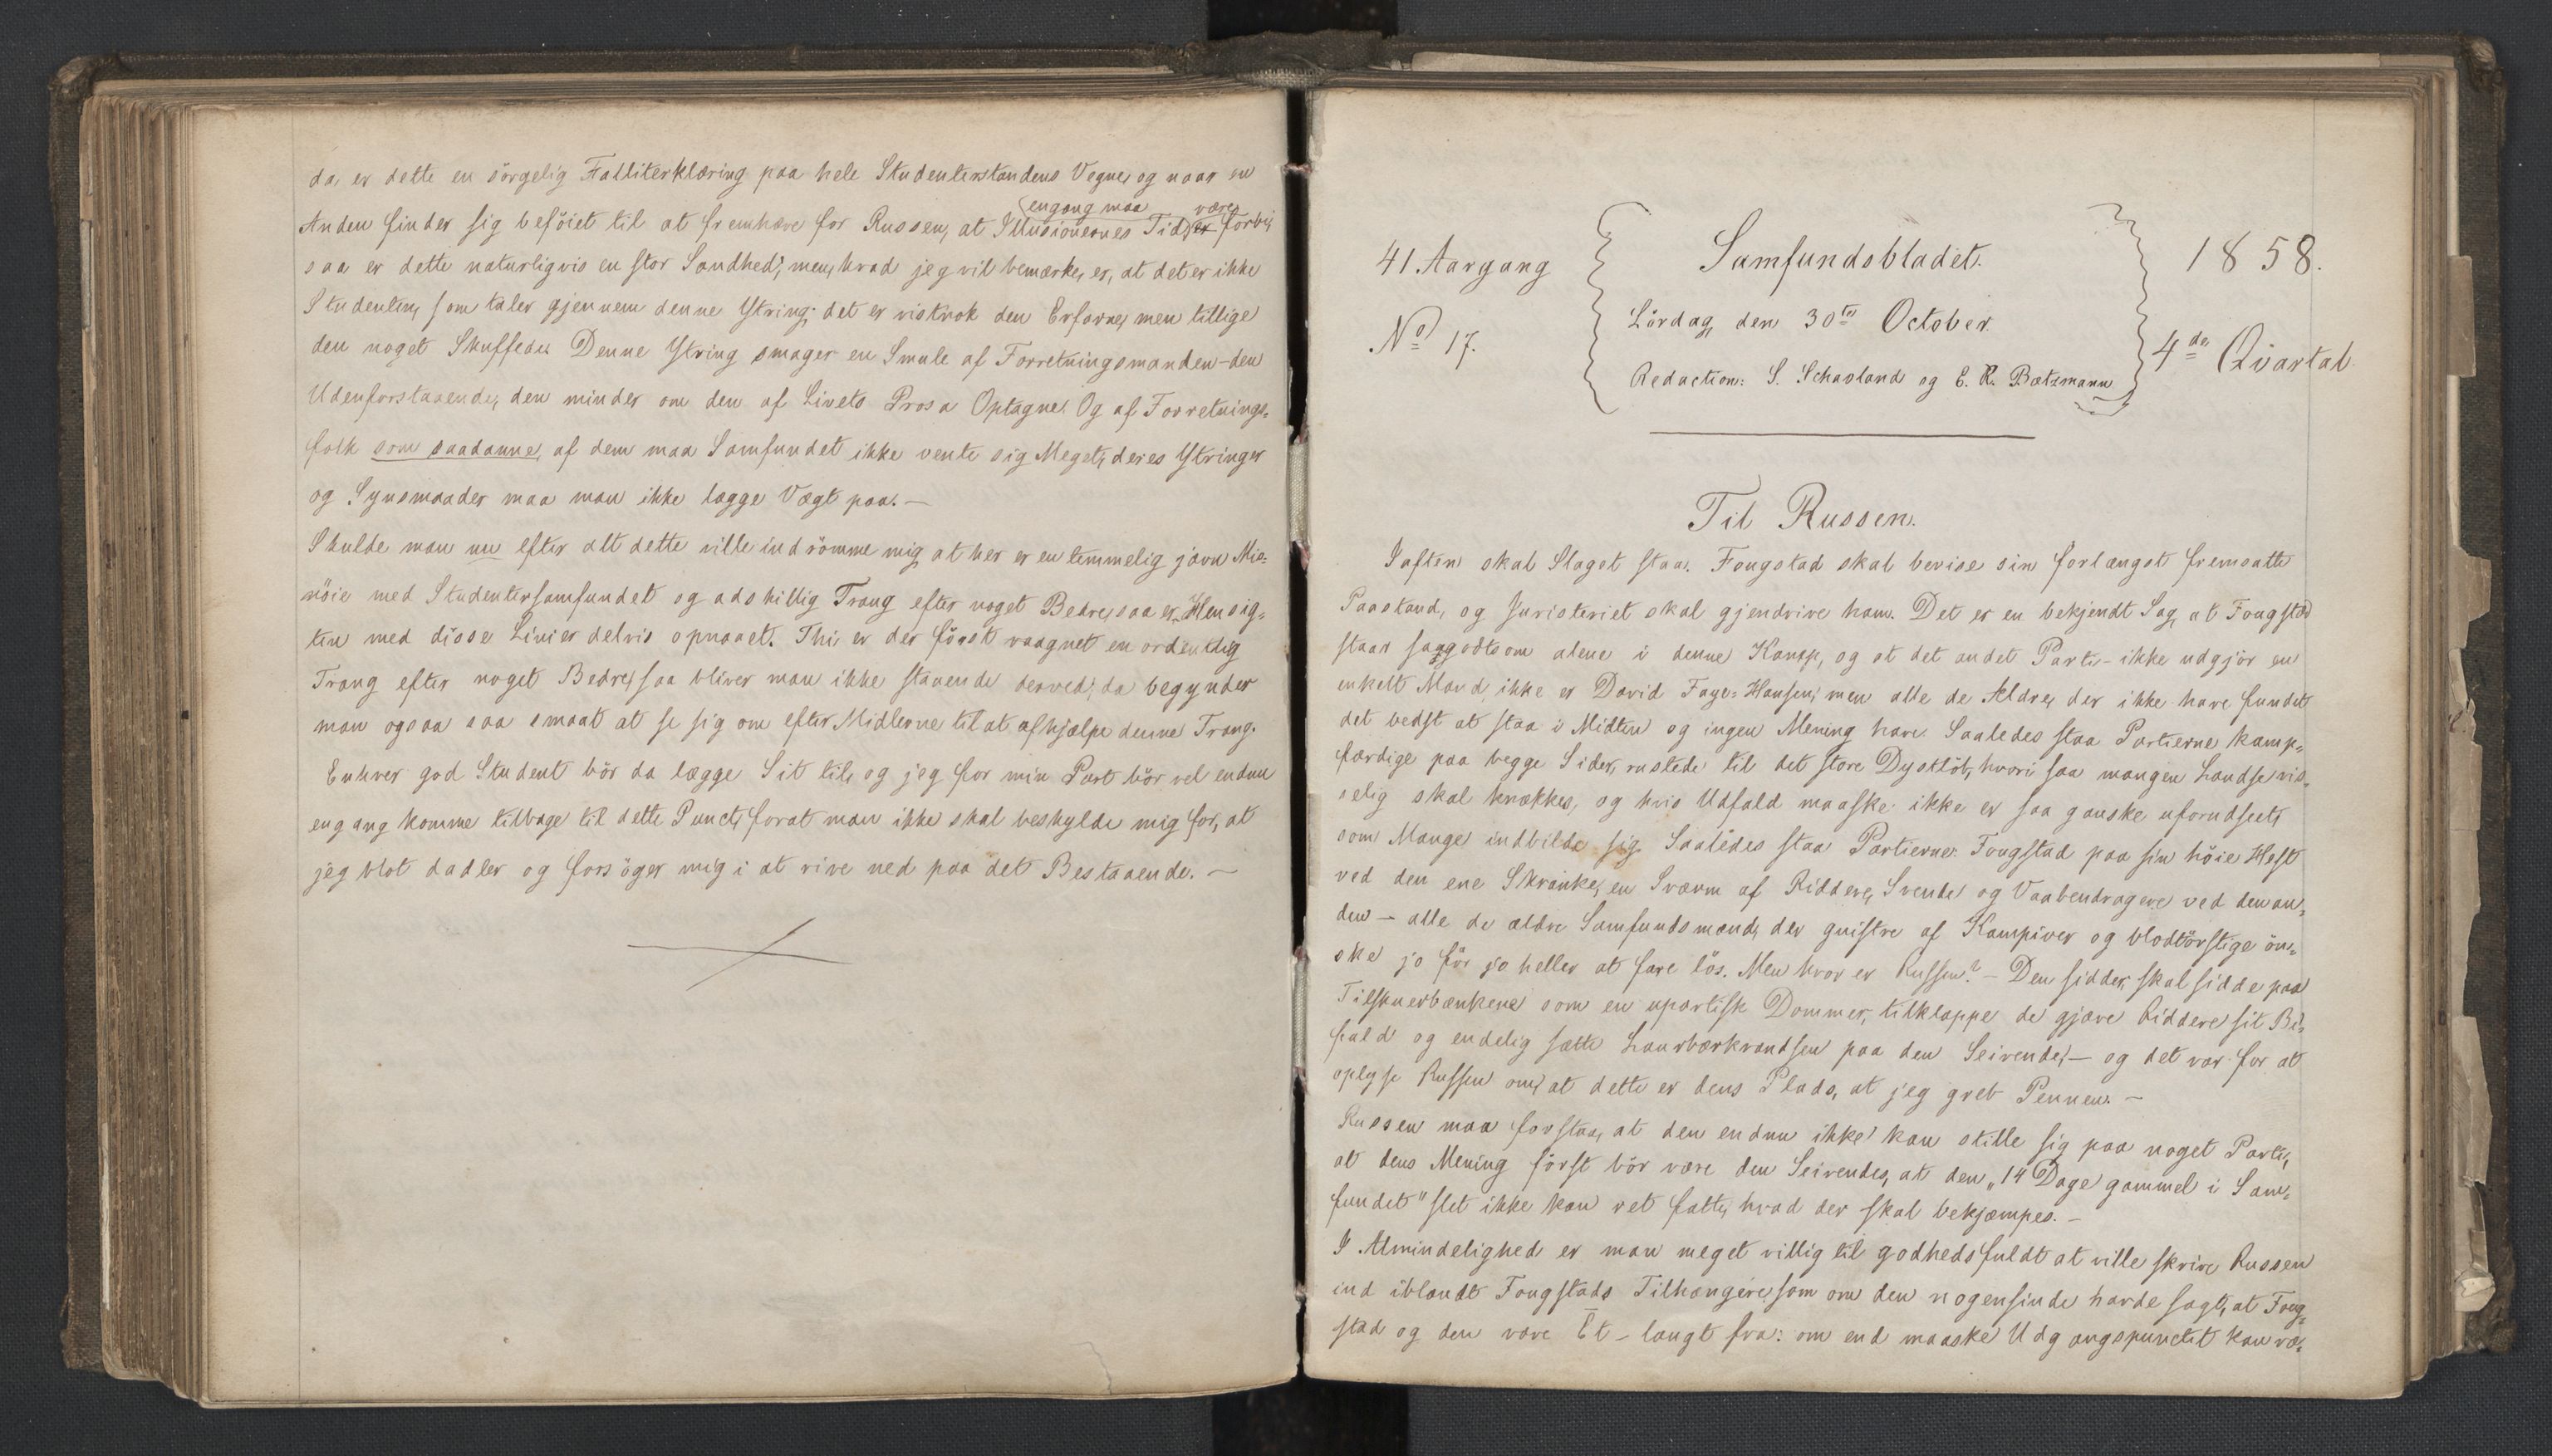 da er dette en sörgelig Falliterklæring paa hele Studenterstandens Vegne, og naar en
engang maa være
Anden finder sig beföiet til at fremhæve for Russen, at Illusionernes Tid er forbi,
saa er dette naturligvis en stor Sandhed; men, hvad jeg vil bemærke, er, at det er ikke
Studenten, som taler gjennem denne Ytring; det er vistnok den Erfarne, men tillige
den noget Skuffede. Denne Ytring smager en Smule af Forretningsmanden – den
Udenforstaaende, den minder om den af Livets Prosa Optagne. Og af Forretnings-
folk som saadanne, af dem maa Samfundet ikke vente sig Meget, deres Ytringer
og Synsmaader maa man ikke lægge Vægt paa. –
Skulde man nu efter alt dette ville indrömme mig, at her er en temmelig jævn Mis-
nöie med Studentersamfundet og adskillig Trang efter noget Bedre, saa er Hensig-
ten med disse Linier delvis opnaaet. Thi er der förat vaagnet en ordentlig
Trang efter noget Bedre, saa bliver man ikke staaende derved; da begynder
man ogsaa saa smaat at se sig om efter Midlerne til at afhjælpe denne Trang.
Enhver god Student bör da lægge Sit til, og jeg for min Part bör vel endnu
engang komme tilbage til dette Punct, forat man ikke skal beskylde mig for, at
jeg blot dadler og forsöger mig i at rive ned paa det Bestaaende. –
41 Aargang
No 17.
Samfundsbladet.
Lördag, den 30te October
Redaction: S. Schavland og E. R. Bætzmann
1858.
4de Qvartal.
Til Russen.
Iaften skal Slaget staa. Fougstad skal bevise sin forlængst fremsatte
Paastand, og Juristeriet skal gjendrive ham. Det er en bekjendt Sag, at Fougstad
staar saagodtsom alene i denne Kamp, og at det andet Parti – ikke udgjör en
enkelt Mand, ikke er David Faye-Hansen, men alle de Ældre, der ikke have fundet
det bedst at staa i Midten og ingen Mening have. Saaledes staa Partierne kamp-
færdige paa begge Sider, rustede til det store Dystlöb, hvori saa mangen Landse vis-
selig skal knækkes, og hvis Udfald maaske ikke er saa ganske uforudseet,
som Mange indbilde sig. Saaledes staa Partierne: Fougstad paa sin höie Hest
ved den ene Skranke, en Sværm af Riddere, Svende og Vaabendragere ved den an-
den – alle de ældre Samfundsmænd, der gnistre af Kampiver og blodtörstige ön-
ske jo för jo heller at fare lös. Men hvor er Russen? – Den sidder, skal sidde paa
Tilskuerbænkene som en upartisk Dommer, tilklappe de gjæve Riddere sit Bi-
fald og endelig sætte Laurbærkrandsen paa den Seirende, – og det var for at
oplyse Russen om, at dette er dens Plads, at jeg greb Pennen. –
Russen maa forstaa, at den endnu ikke kan stille sig paa noget Parti,
at dens Mening förat bör være den Seirendes, at den „14 Dage gammel i Sam-
fundet" slet ikke kan ret fatte, hvad der skal bekjæmpes. –
I Almindelighed er man meget villig til godhedsfuldt at ville skrive Russen
ind iblandt Fougstads Tilhængere, som om den nogensinde havde sagt, at Foug-
stad og den vare Ét – langt fra: om end maaske Udgangspunctet kan væ-